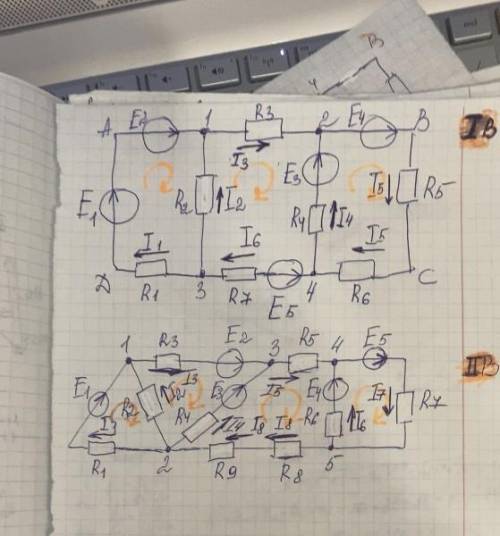 B
A E2 1 R3 2 E4 B IB
I3 E3
E1 R2 I2 R4 I4 I5 R5
I1 I6 I5
D R1 3 R7 E5 4 R6 C
1 R3 E2 3 R5 4 E5 IIB
I3 I5
E1 R2 I2 E3 E4 I7 R7
I1 R4 I4 I8 I8 R6 I6
R1 2 R9 R8 5